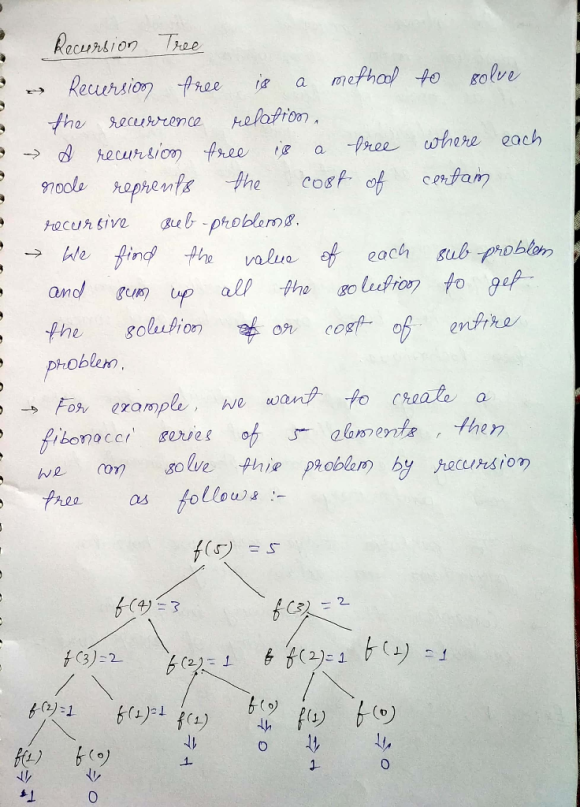 Recursion Tree
→ Recursion tree is a method to solve
the recurrence relation.
→ A recursion tree is a tree where each
node reprents the cost of certain
recursive sub-problems.
→ We find the value of each sub-problem
and sum up all the solution to get
the solution or cost of entire
problem.
→ For example, we want to create a
fibonacci series of 5 elements, then
we can solve this problem by recursion
tree as follows :-
f(5) = 5
f(4) = 3 f(3) = 2
f(3) = 2 f(2) = 1 f(2) = 1 f(1) = 1
f(2) = 1 f(1) = 1 f(1) f(0) f(1) f(0)
1 0 1 0
f(1) f(0)
1 0